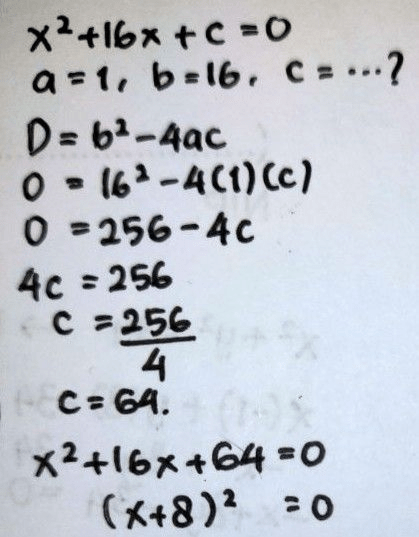 x²+16x+c=0
a=1, b=16, c=...?
D=b²-4ac
0=16²-4(1)(c)
0=256-4c
4c=256
c=256/4
c=64.
x²+16x+64=0
(x+8)²=0